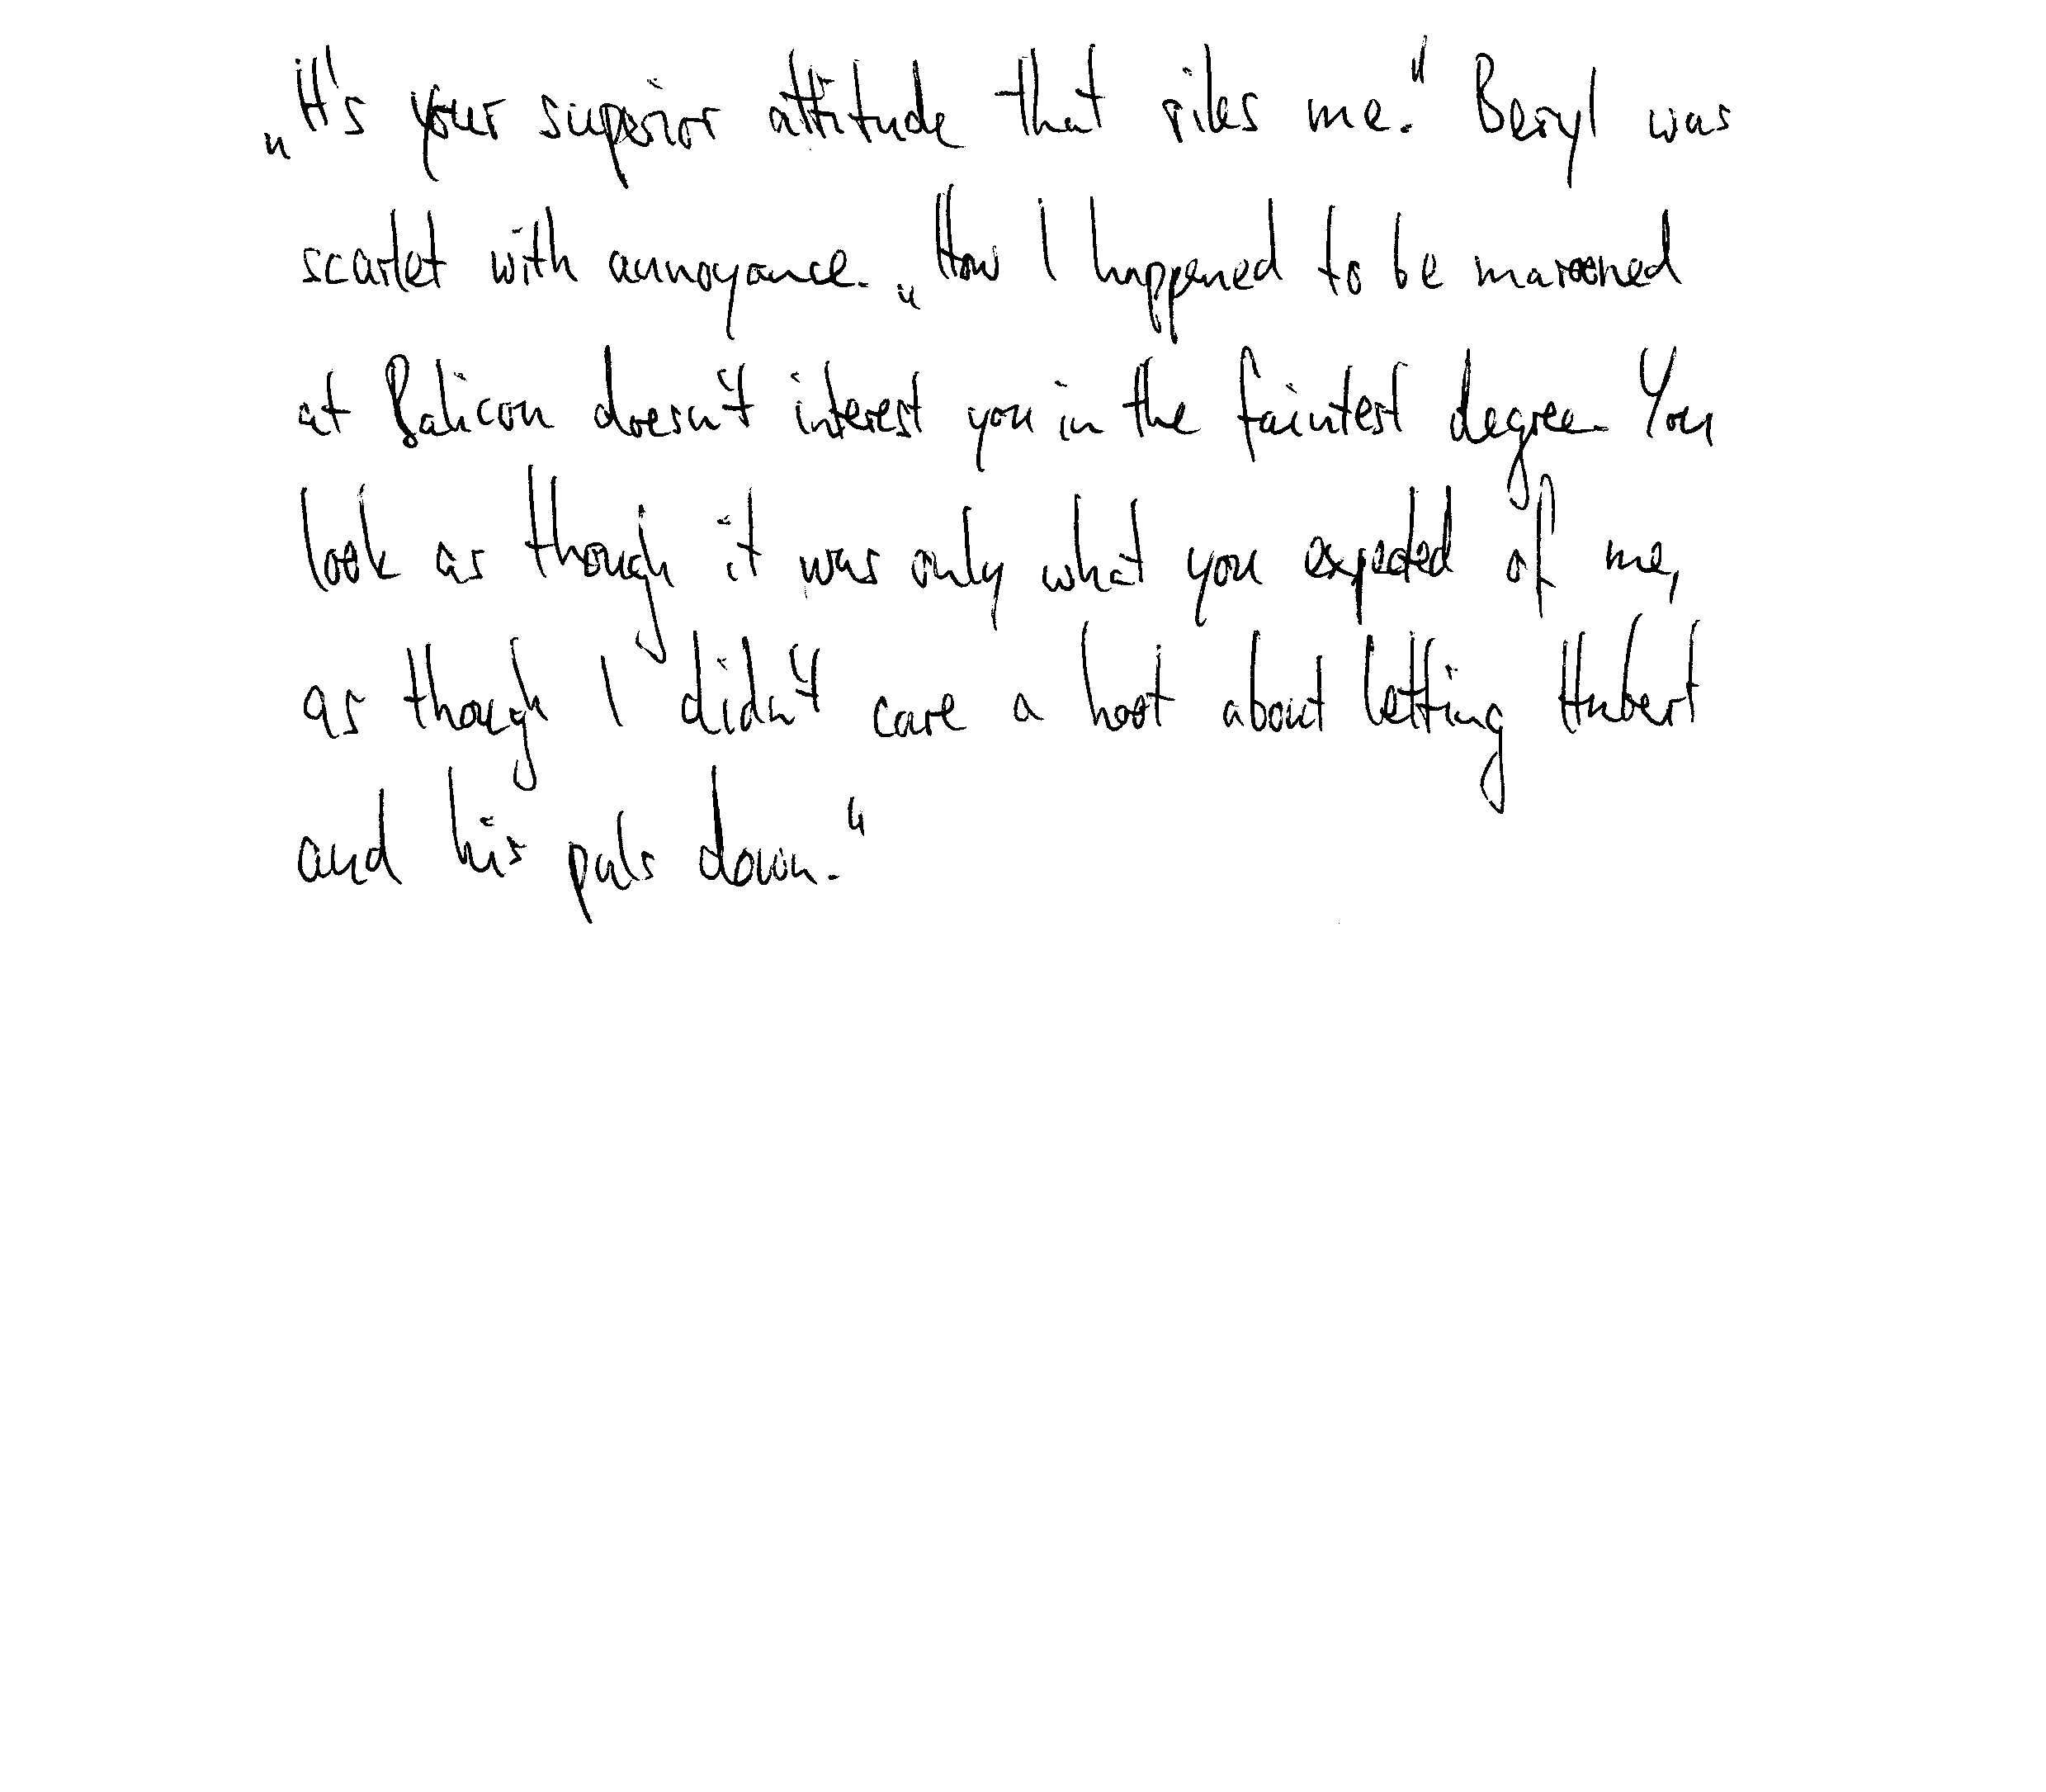 „It's your superior attitude that riles me." Beryl was
scarlet with annoyance. „How I happened to be marooned
at Balicon doesn't interest you in the faintest degree. You
look as though it was only what you expected of me,
as though I didn't care a hoot about letting Hubert
and his pals down."